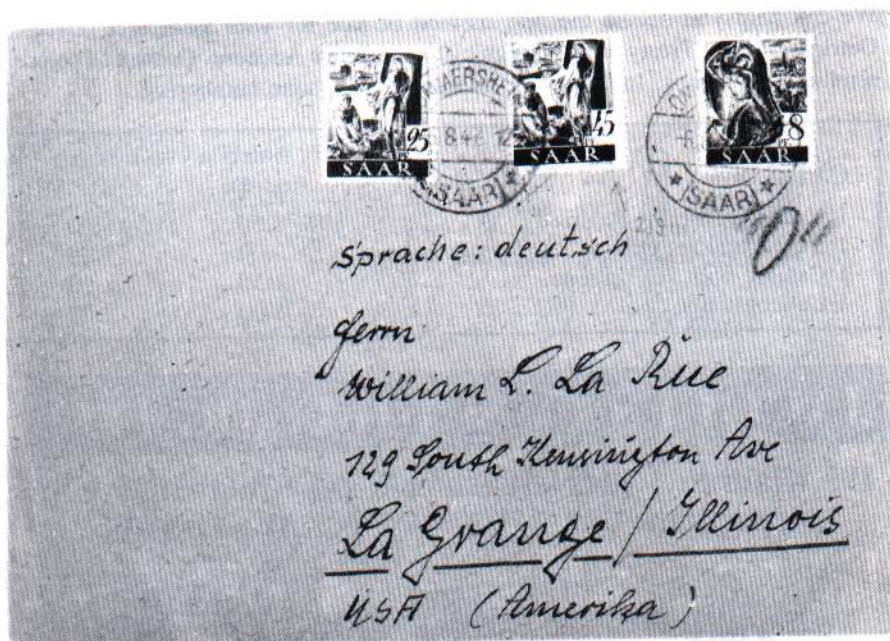 25 PF SAAR
45 PF SAAR
8 PF SAAR
MMERSHE
8.47 12
(SAAR)
(SAAR)
"0"
Sprache: deutsch
Herrn
William L. La Rue
129 South Kensington Ave
La Grange / Illinois
USA (Amerika)